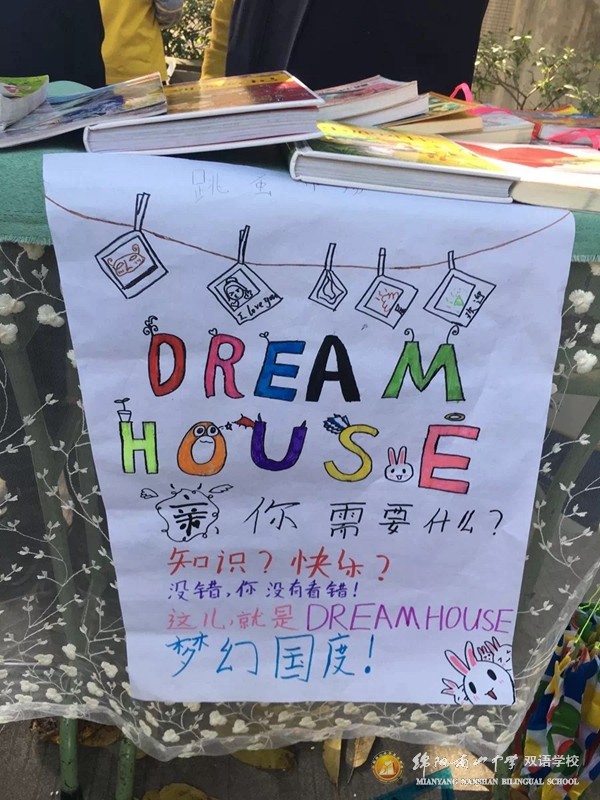 跳蚤市场
I love you
DREAM
HOUSE
你需要什么?
知识?快乐?
没错,你没有看错!
这儿,就是DREAMHOUSE
梦幻国度!
绵阳南山中学双语学校
MIANYANG NANSHAN BILINGUAL SCHOOL